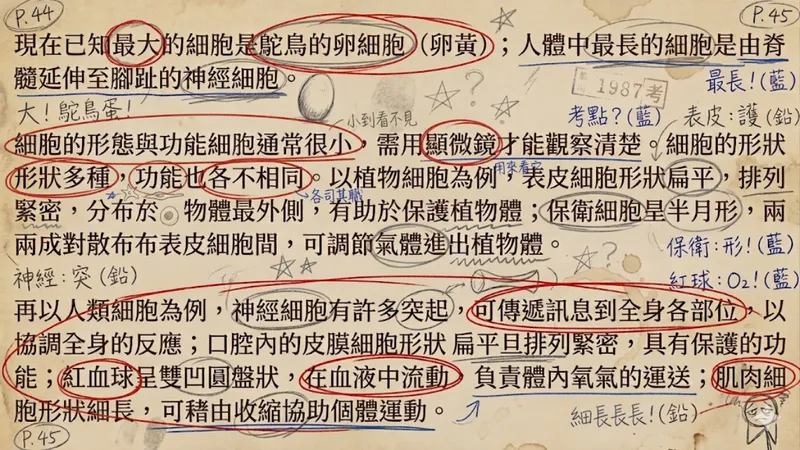 P.44
P.45
現在已知最大的細胞是鴕鳥的卵細胞（卵黃）；人體中最長的細胞是由脊
髓延伸至腳趾的神經細胞。
最長!(藍)
大！鴕鳥蛋!
1987考
小到看不見
考點?(藍)
表皮:護(鉛)
細胞的形態與功能細胞通常很小，需用顯微鏡才能觀察清楚。細胞的形狀
用來看它
形狀多種，功能也各不相同。以植物細胞為例，表皮細胞形狀扁平，排列
各司其職
緊密，分布於 物體最外側，有助於保護植物體；保衛細胞呈半月形，兩
兩成對散布布表皮細胞間，可調節氣體進出植物體。
保衛:形!(藍)
神經:突(鉛)
紅球:O₂!(藍)
再以人類細胞為例，神經細胞有許多突起，可傳遞訊息到全身各部位，以
協調全身的反應；口腔內的皮膜細胞形狀 扁平旦排列緊密，具有保護的功
能；紅血球呈雙凹圓盤狀，在血液中流動，負責體內氧氣的運送；肌肉細
胞形狀細長，可藉由收縮協助個體運動。
細長長長!(鉛)
P.45